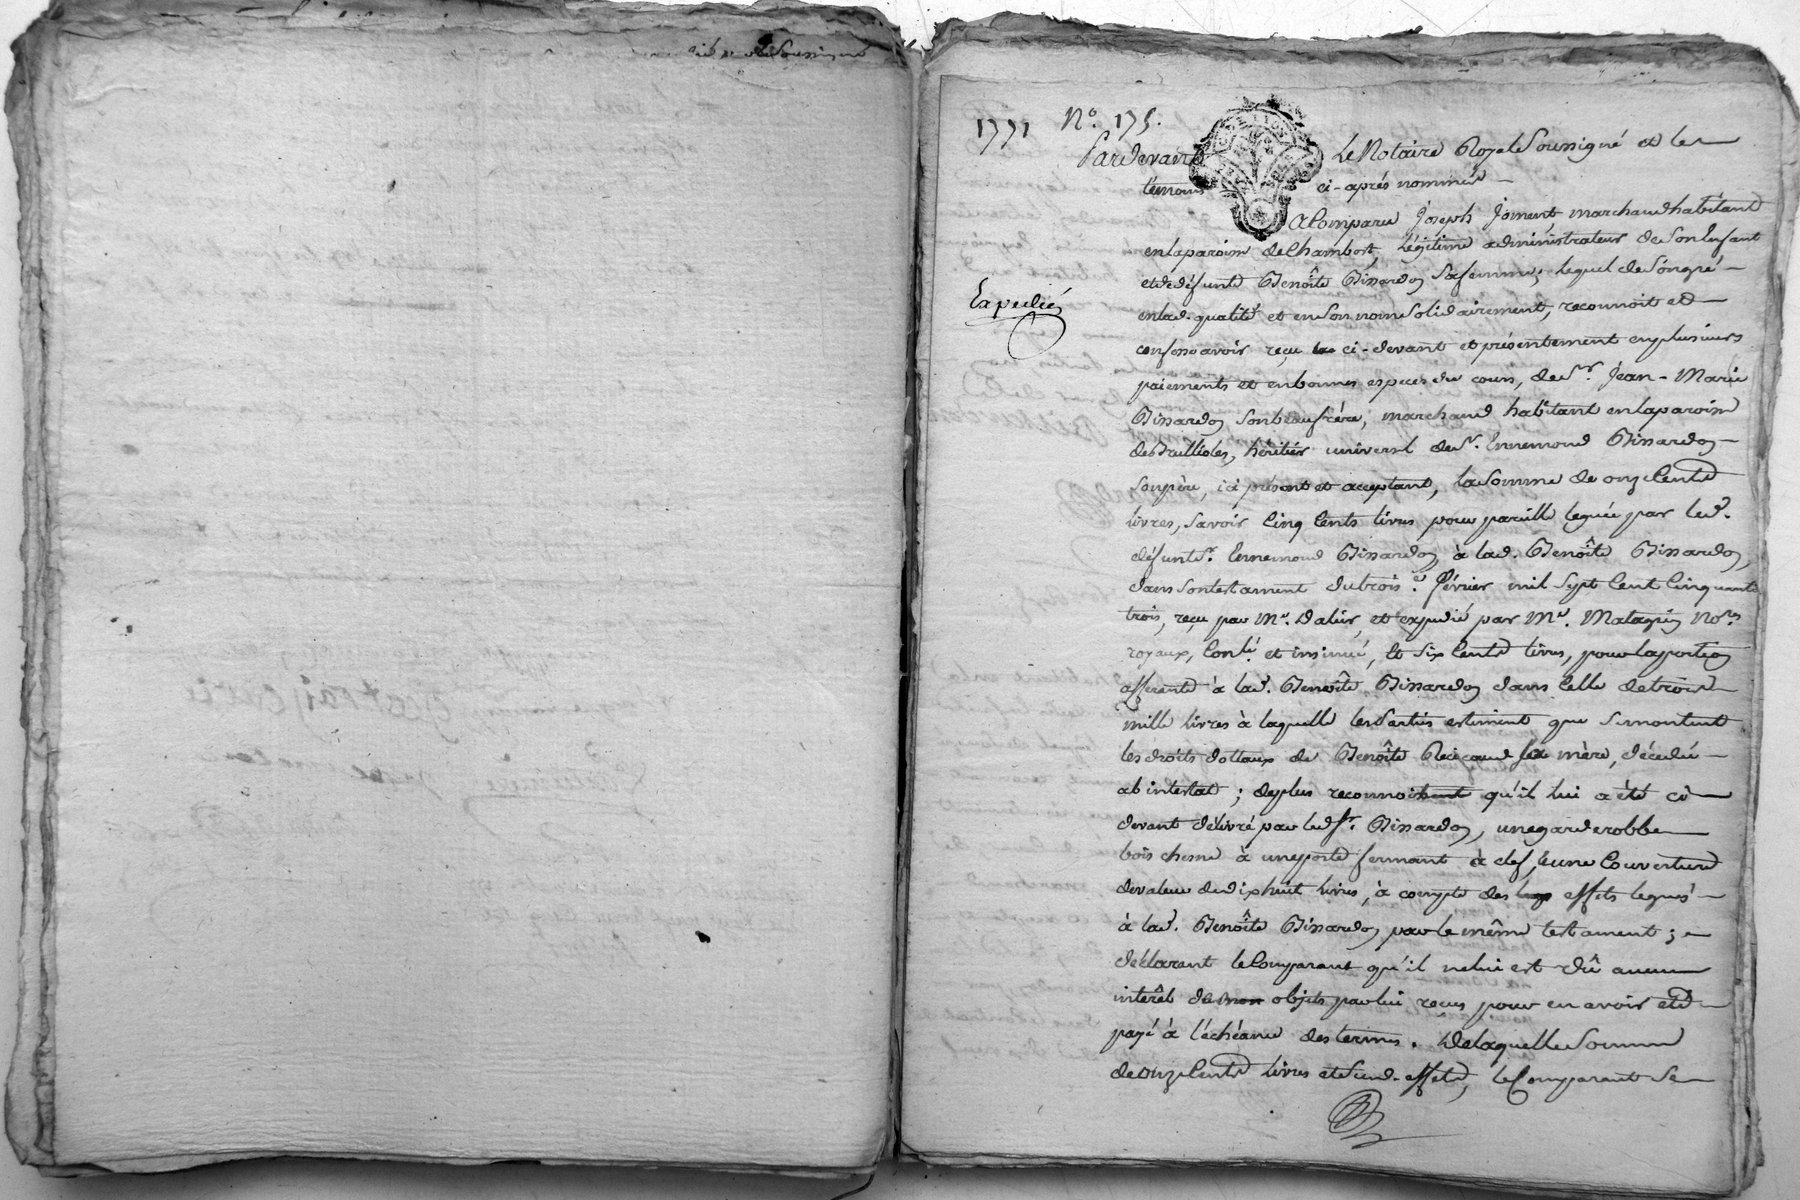 1771 N.º 175.
Pardevant Le Notaire Royal Soussigné et les
témoins ci-après nommés
A Comparu Joseph Joment, marchand habitant
en la paroisse de Chambost, légitime administrateur de Son Enfant
et de défunte Benoîte Bissardon Sa femme; lequel de Son gré
en lad. qualité et en Son nom Solidairement, reconnoit et
confesse avoir reçu ci-devant et présentement en plusieurs
paiements et en bonnes especes du cours, de Sr. Jean-Marie
Bissardon Son beaufrère, marchand habitant en la paroisse
de Brullioles, héritier universel de Sr. Ennemond Bissardon
Son père, ici présent et acceptant, la Somme de onze Cents
livres, Savoir Cinq Cents livres pour pareille leguée par led.
défunt Sr. Ennemond Bissardon à lad. Benoîte Bissardon,
dans Son testament du trois.e février mil Sept Cent Cinquante
trois, reçu par Me. Dalier, et expédié par Me. Matagrin No.res
royaux, Conlé. et insinué, Et Six Cents livres, pour la portion
afferente à lad. Benoîte Bissardon dans Celle de trois
mille livres à laquelle les Parties estiment que Se montent
les droits dottaux de Benoîte Reicaud Sa mère, décédée
ab intestat; de plus reconnoit qu'il lui a été ci
devant délivré par led Sr. Bissardon, une garderobbe
bois chesne à une porte fermant à clef, & une Couverture
de valeur de dix huit livres, à compte des effets legués
à lad. Benoîte Bissardon par le même testament;
déclarant le Comparant qu'il ne lui est dû aucun
intérêt des objets par lui reçus pour en avoir été
payé à l'échéance des termes. De laquelle Somme
de onze Cents livres et desd. effets, le Comparant Se
Expedié